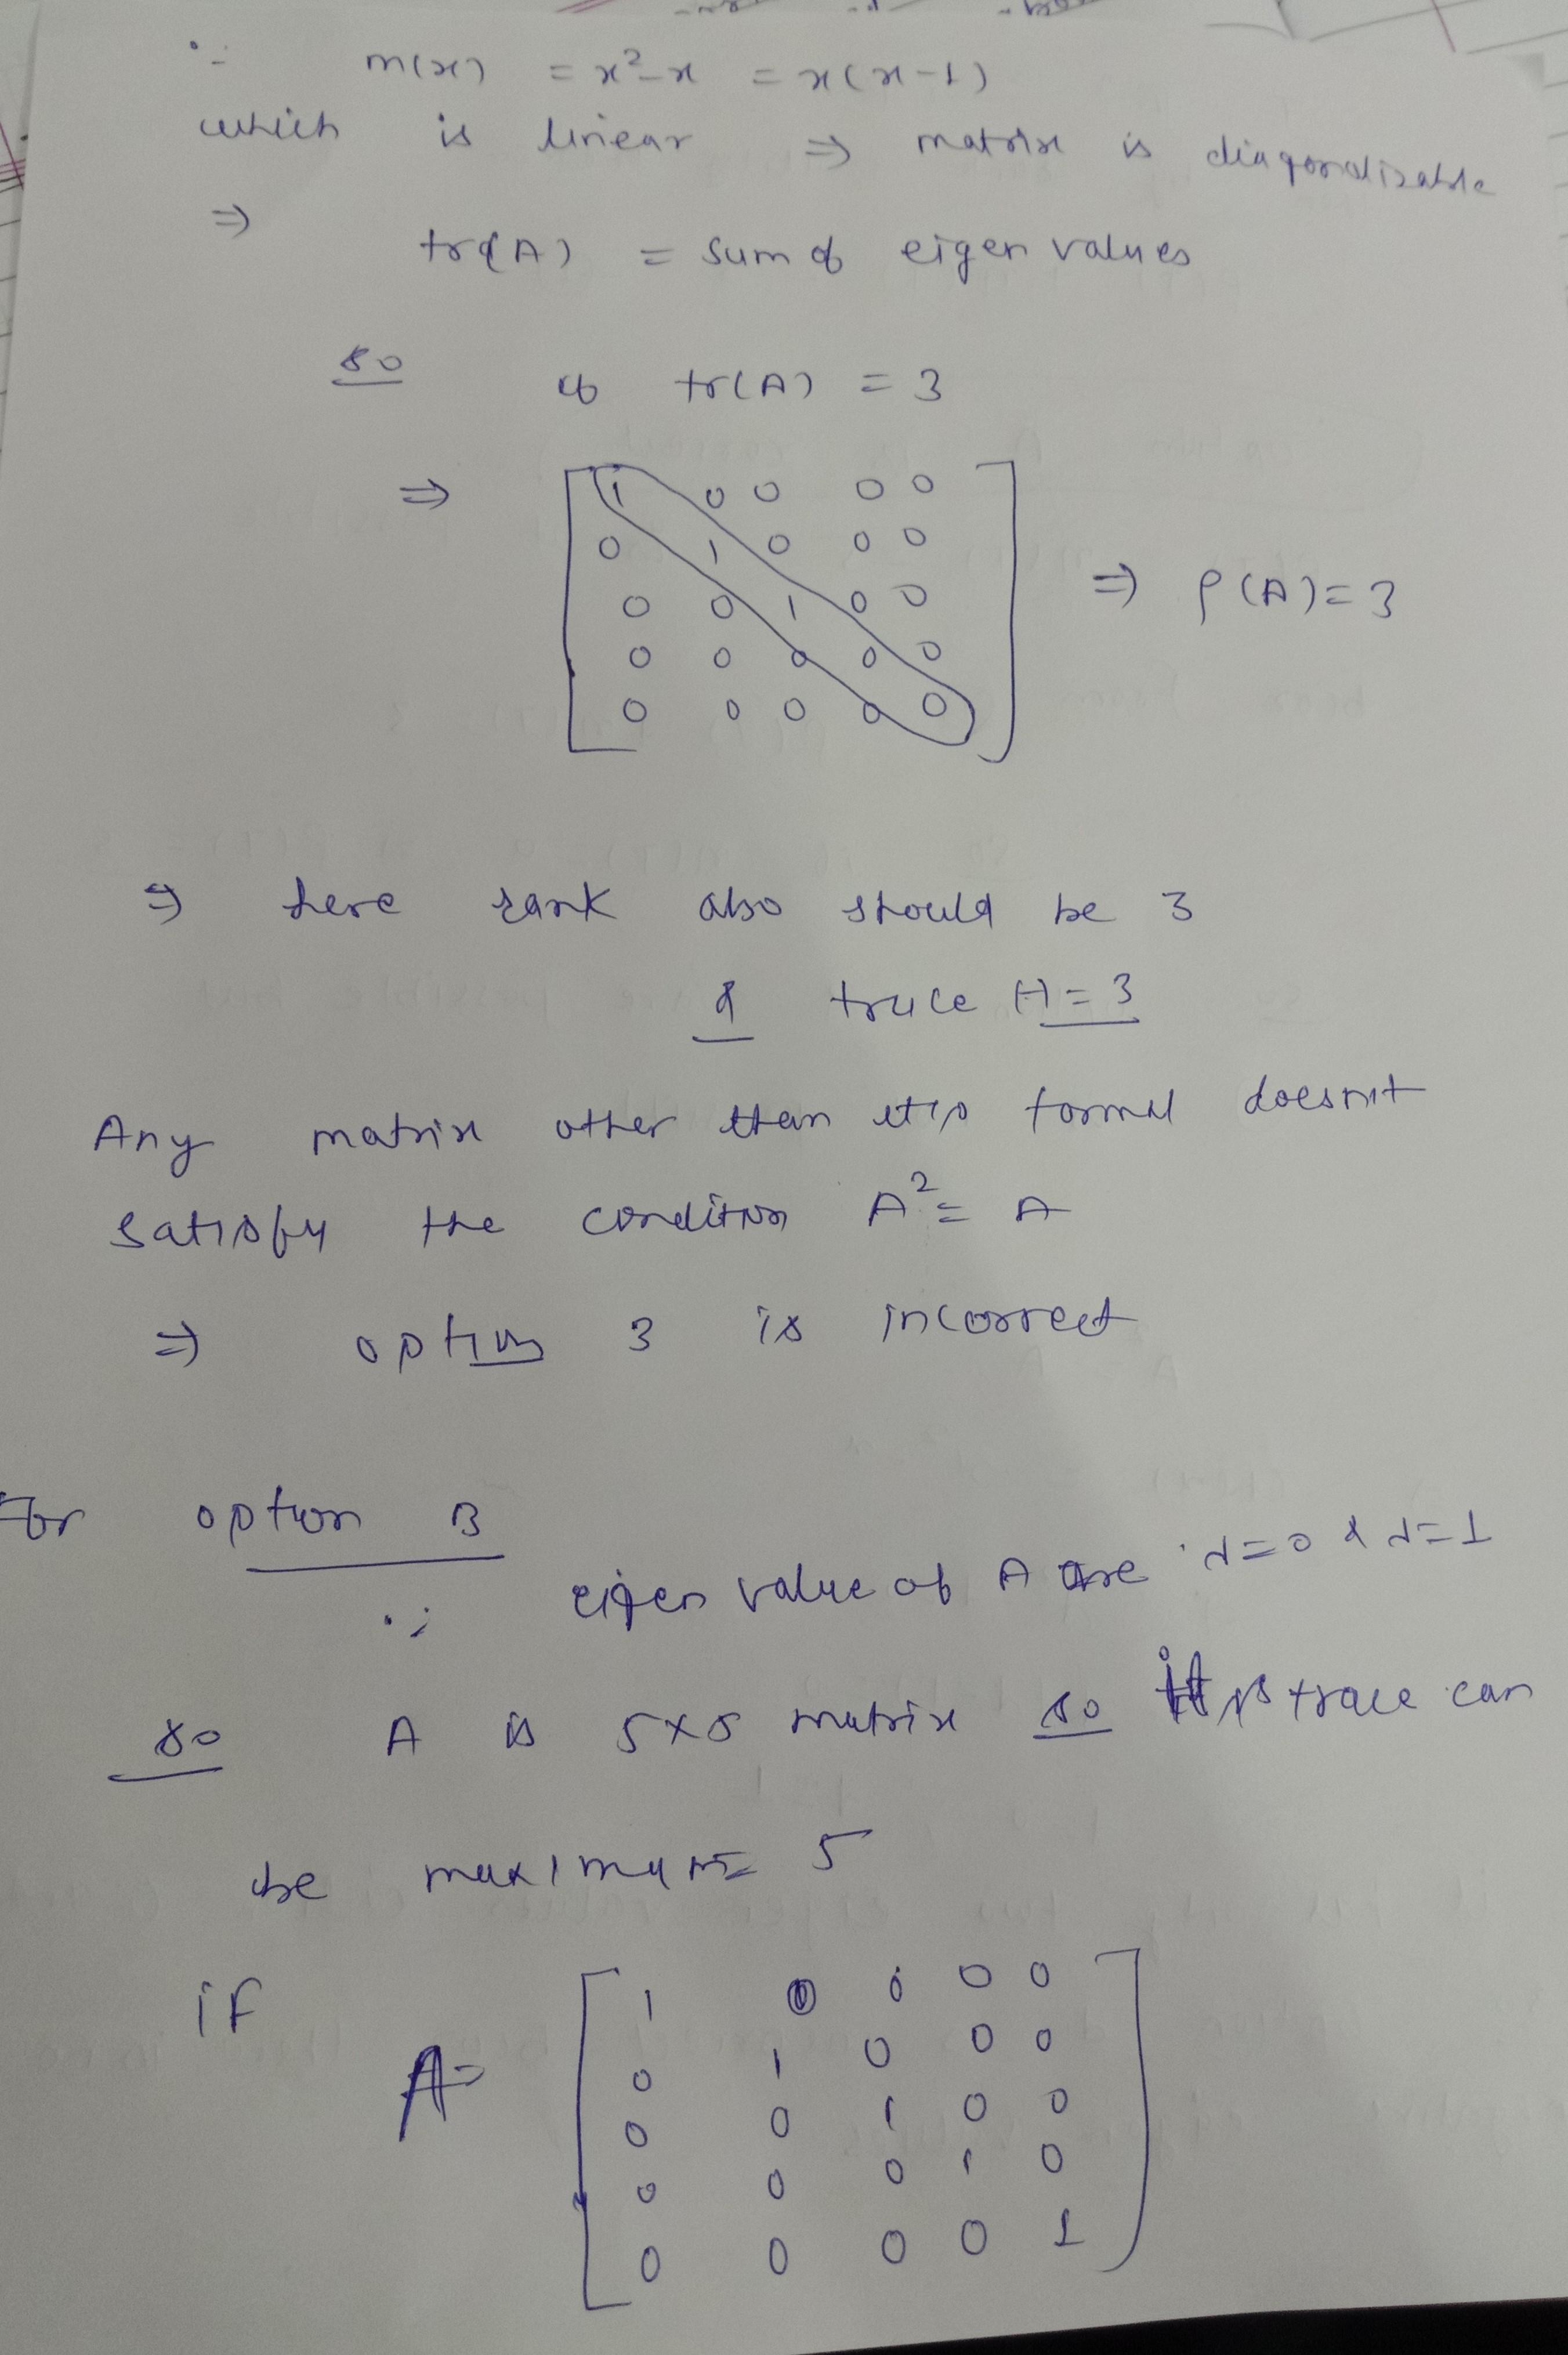 ∵ m(x) = x²-x = x(x-1)
which is linear ⇒ matrix is diagonalizable
⇒ tr(A) = sum of eigen values
so if tr(A) = 3
⇒ [ 1 0 0 0 0
0 1 0 0 0
0 0 1 0 0 ⇒ ρ(A)=3
0 0 0 0 0
0 0 0 0 0 ]
⇒ here rank also should be 3
& trace A = 3
Any matrix other than this format doesn't
satisfy the condition A² = A
⇒ option 3 is incorrect
For option B
∵ eigen value of A are λ=0 & λ=1
so A is 5×5 matrix so its trace can
be maximum = 5
if
A= [ 1 0 0 0 0
0 1 0 0 0
0 0 1 0 0
0 0 0 1 0
0 0 0 0 1 ]